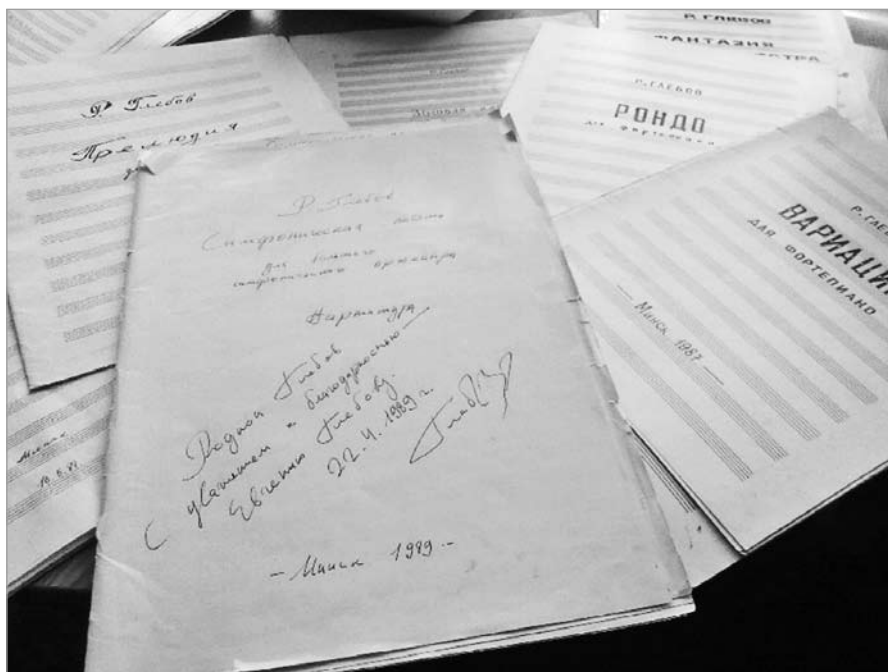 Р. ГЛЕБОВ
ФАНТАЗИЯ
Р. Глебов
Прелюдия
Р. ГЛЕБОВ
РОНДО
для фортепиано
Р. ГЛЕБОВ
ВАРИАЦИИ
ДЛЯ ФОРТЕПИАНО
— Минск 1987 —
Р. Глебов
Симфоническая поэма
для большого
симфонического оркестра
Партитура
Родион Глебов
С уважением и благодарностью —
Евгению Глебову.
22. 4. 1989 г.
– Минск 1989 –
Минск